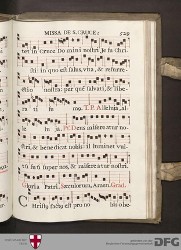 MISSA DE S. CRUCE. 529
tet in Cruce Do mini nostri Je su Chri
sti: in quo est salus, vita, & resurre-
ctio nostra: per quem salvati, & libe-
ra ti su mus. T.P. Alleluia, al-
le lu ia. Ps. Deus misereatur no-
stri, & benedicat nobis: illuminet vul-
tum suum super nos, & misereatur nostri.
Gloria Patri. Sæculorum, Amen. Grad.
Christus factus est pro no bis obe-
DFG